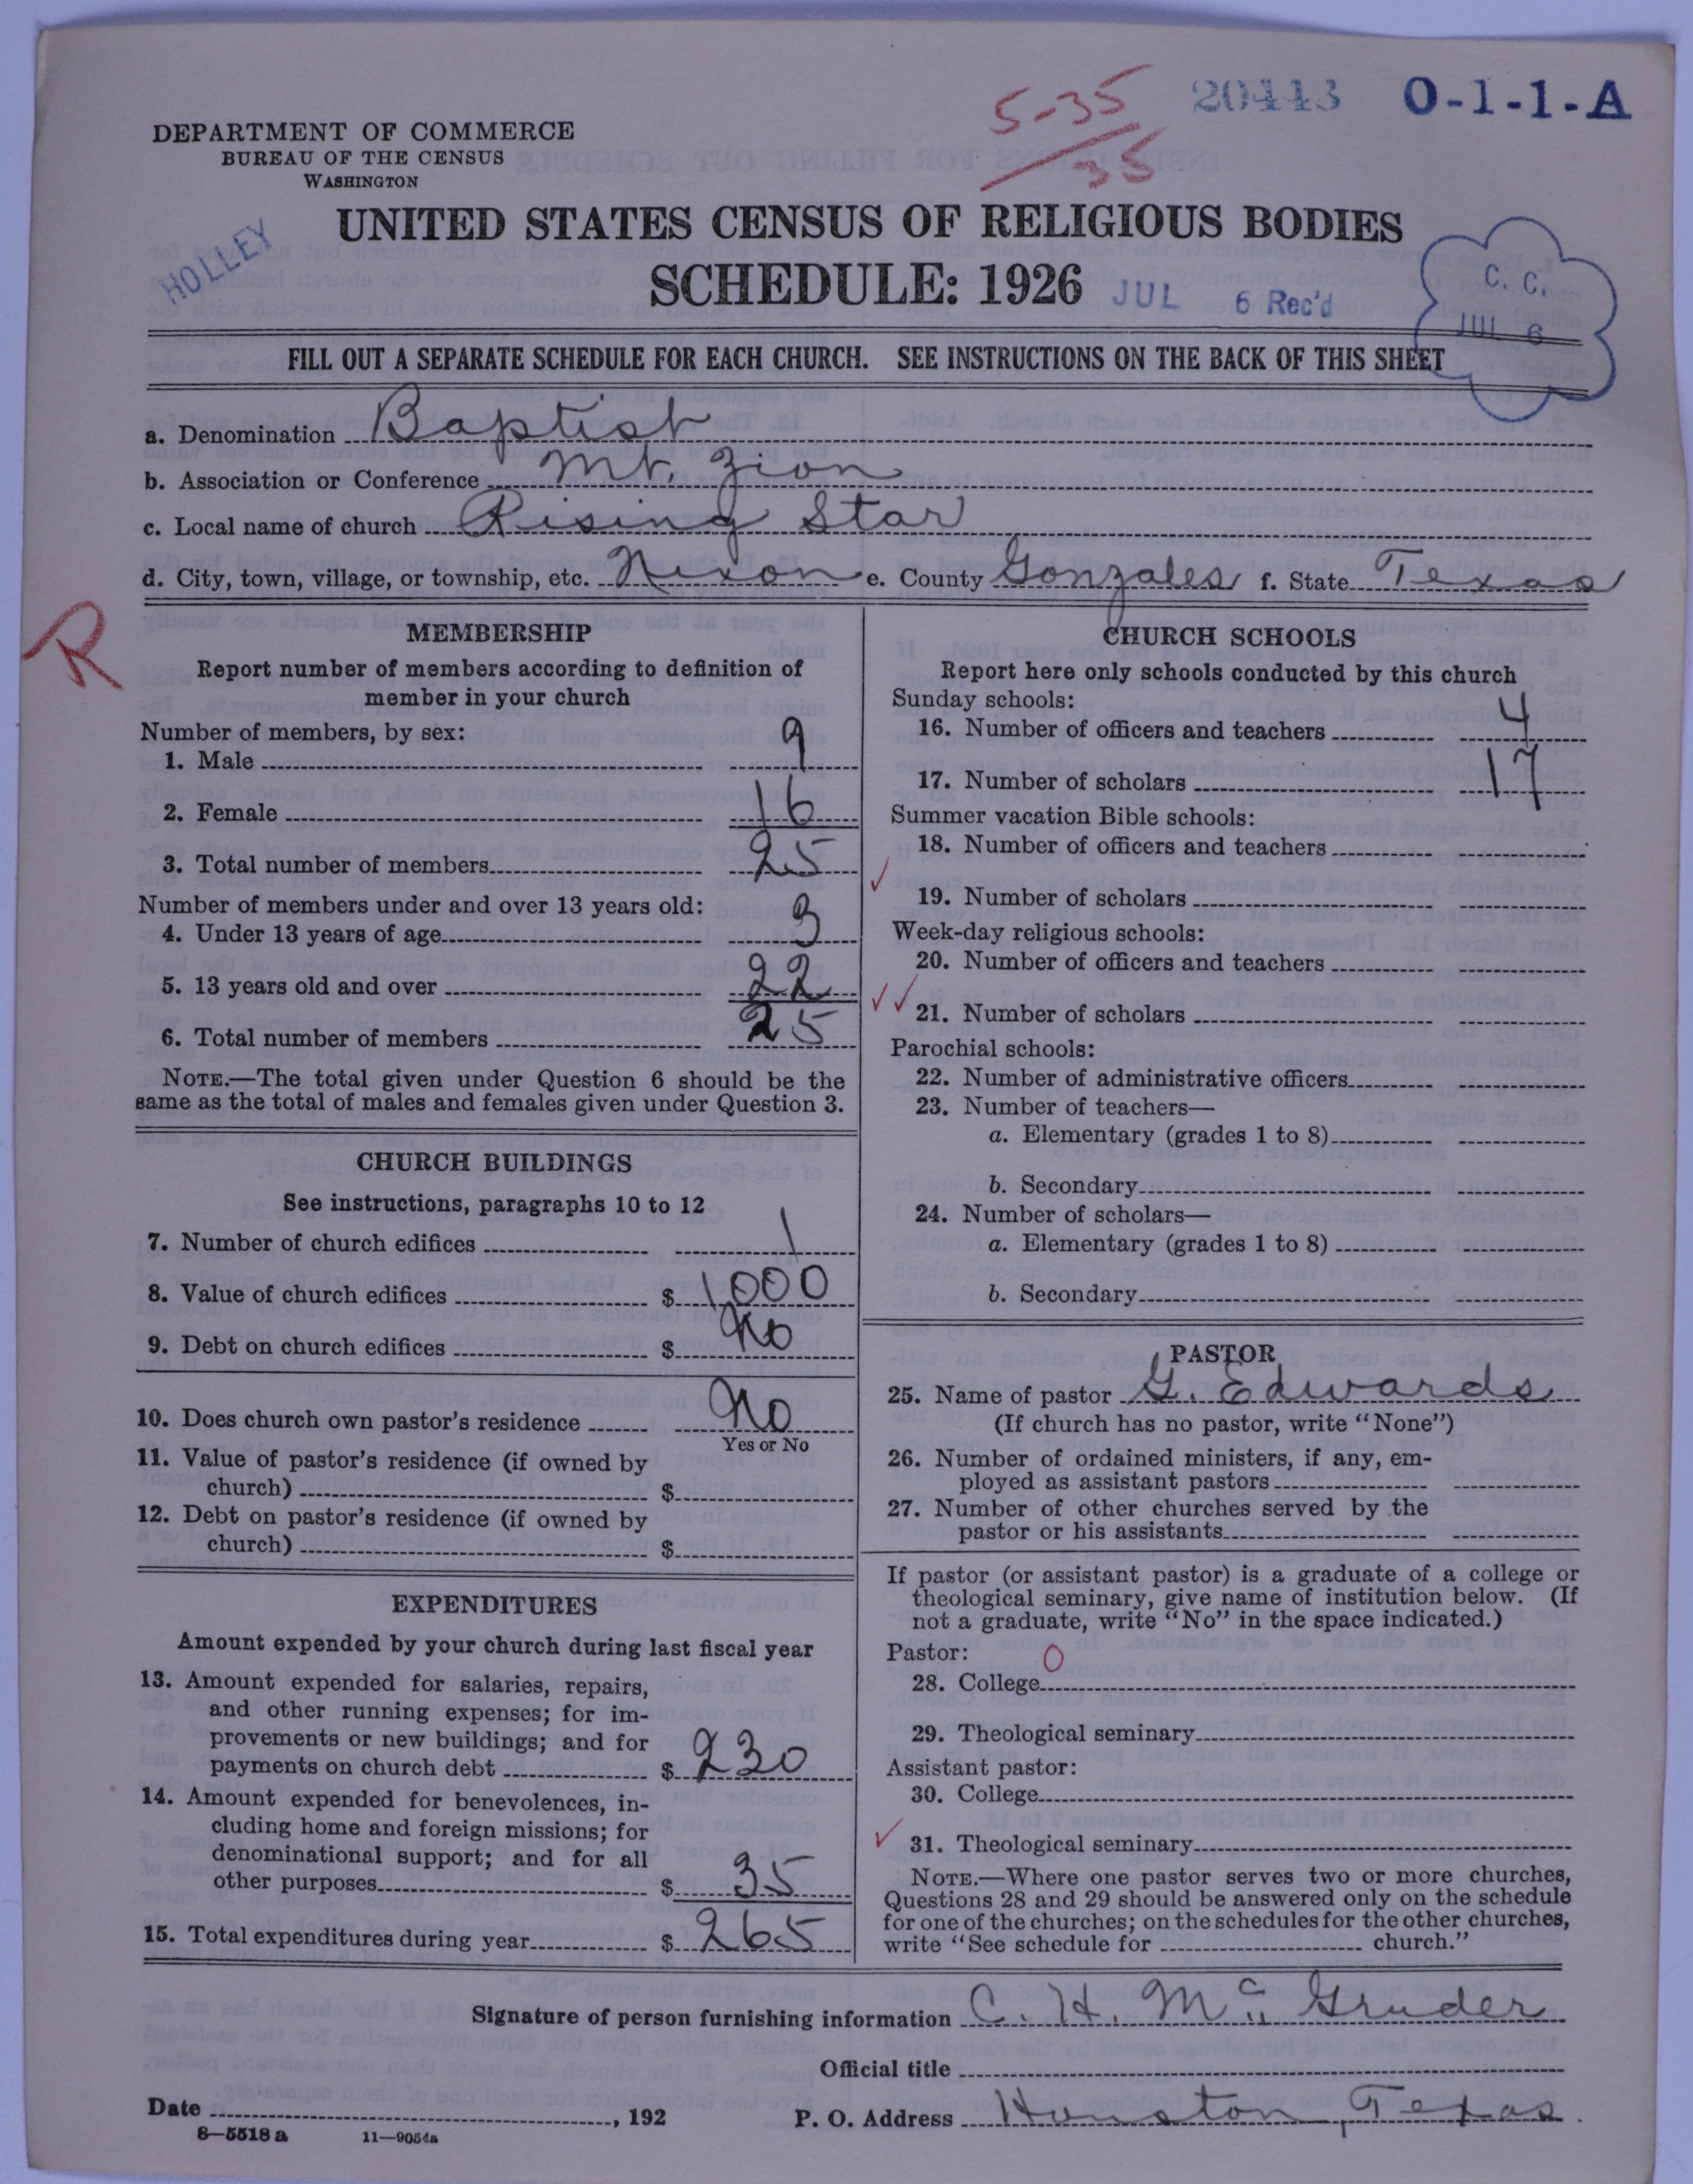 5-35
35
20443 0-1-1-A
DEPARTMENT OF COMMERCE
BUREAU OF THE CENSUS
WASHINGTON
HOLLEY
UNITED STATES CENSUS OF RELIGIOUS BODIES
SCHEDULE: 1926
JUL 6 Rec'd
C. C.
JUL 6
FILL OUT A SEPARATE SCHEDULE FOR EACH CHURCH. SEE INSTRUCTIONS ON THE BACK OF THIS SHEET
a. Denomination Baptist
b. Association or Conference Mt. Zion
c. Local name of church Rising Star
d. City, town, village, or township, etc. Nixon e. County Gonzales f. State Texas
R
MEMBERSHIP
Report number of members according to definition of
member in your church
Number of members, by sex:
1. Male 9
2. Female 16
3. Total number of members 25
Number of members under and over 13 years old:
4. Under 13 years of age 3
5. 13 years old and over 22
6. Total number of members 25
NOTE.—The total given under Question 6 should be the
same as the total of males and females given under Question 3.
CHURCH BUILDINGS
See instructions, paragraphs 10 to 12
7. Number of church edifices 1
8. Value of church edifices $ 1000
9. Debt on church edifices $ No
10. Does church own pastor's residence No
Yes or No
11. Value of pastor's residence (if owned by
church) $
12. Debt on pastor's residence (if owned by
church) $
EXPENDITURES
Amount expended by your church during last fiscal year
13. Amount expended for salaries, repairs,
and other running expenses; for im-
provements or new buildings; and for
payments on church debt $ 230
14. Amount expended for benevolences, in-
cluding home and foreign missions; for
denominational support; and for all
other purposes $ 35
15. Total expenditures during year $ 265
CHURCH SCHOOLS
Report here only schools conducted by this church
Sunday schools:
16. Number of officers and teachers 4
17. Number of scholars 17
Summer vacation Bible schools:
18. Number of officers and teachers
19. Number of scholars
Week-day religious schools:
20. Number of officers and teachers
21. Number of scholars
Parochial schools:
22. Number of administrative officers
23. Number of teachers—
a. Elementary (grades 1 to 8)
b. Secondary
24. Number of scholars—
a. Elementary (grades 1 to 8)
b. Secondary
PASTOR
25. Name of pastor G. Edwards
(If church has no pastor, write "None")
26. Number of ordained ministers, if any, em-
ployed as assistant pastors
27. Number of other churches served by the
pastor or his assistants
If pastor (or assistant pastor) is a graduate of a college or
theological seminary, give name of institution below. (If
not a graduate, write "No" in the space indicated.)
Pastor: 0
28. College
29. Theological seminary
Assistant pastor:
30. College
31. Theological seminary
NOTE.—Where one pastor serves two or more churches,
Questions 28 and 29 should be answered only on the schedule
for one of the churches; on the schedules for the other churches,
write "See schedule for church."
Signature of person furnishing information C. H. Mc Gruder
Official title
Date , 192 P. O. Address Houston, Texas.
8—5518 a 11—9054a